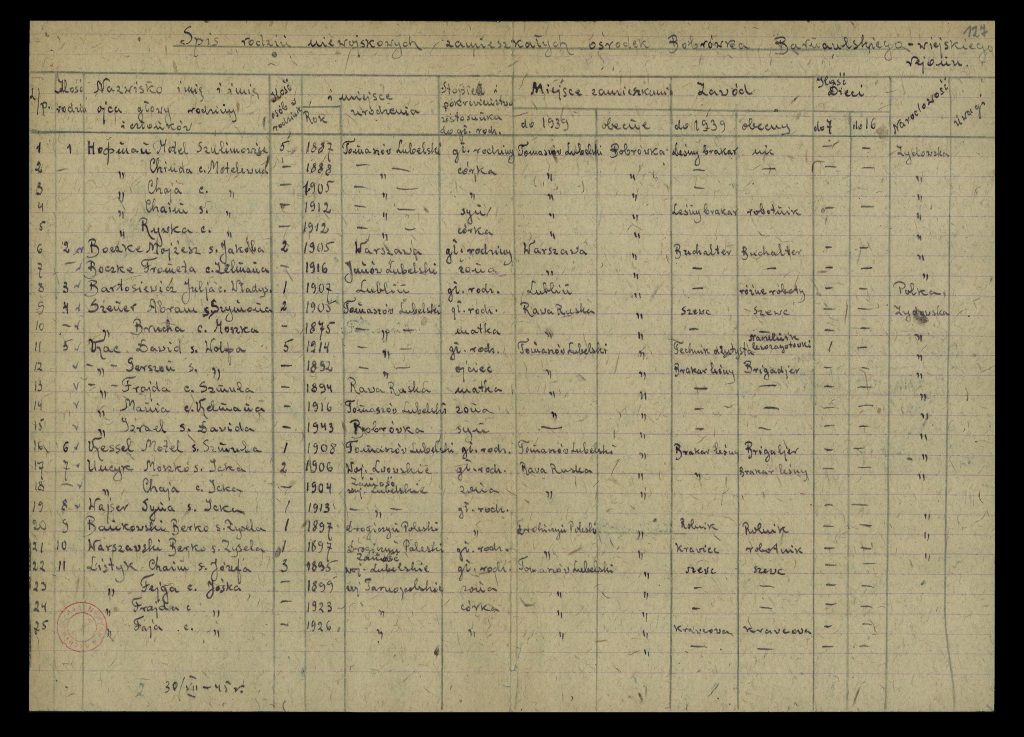 127
Spis rodzin niewojskowych zamieszkałych ośrodek Bobrówka Barnaulskiego-wiejskiego rejonu.
L/p. Ilość rodzin Nazwisko imię i imię ojca głowy rodziny i członków Ilość osób w rodzinie Rok i miejsce urodzenia Stopień pokrewieństwa w stosunku do gł. rodz. Miejsce zamieszkania do 1939 obecnie Zawód do 1939 obecny Ilość Dzieci do 7 do 16 Narodowość Uwagi
1 1 Hofman Motel Szulimowicz 5 1887 Tomaszów Lubelski gł. rodziny Tomaszów Lubelski Bobrówka Leśny brakar nie — — Żydowska
2 — „ Chinda c. Motelewna — 1888 — „ — córka „ „ — + — — „
3 „ Chaja c. „ — 1905 — „ — „ „ „ — — — — „
4 „ Chaim s. „ — 1912 — „ — syn „ „ Leśny brakar robotnik — — „
5 „ Rywka c. „ — 1912 — „ — córka „ „ — — — — „
6 2 Boczke Mojżesz s. Jakóba 2 1905 Warszawa gł. rodziny Warszawa „ Buchalter Buchalter — — „
7 — Boczke Frometa c. Zelmana — 1916 Janów Lubelski żona „ „ — — — — „
8 3 Bartosiewicz Julja c. Władys. 1 1907 Lublin gł. rodz. Lublin „ — różne roboty — — Polka
9 4 Szener Abram s. Szymona 2 1905 Tomaszów Lubelski gł. rodz. Rawa Ruska „ szewc szewc — — Żydowska
10 — „ Brucha c. Moszka — 1875 — „ — matka „ „ — — — — „
11 5 Kac Dawid s. Wolfa 5 1914 — „ — gł. rodz. Tomaszów Lubelski „ Technik dentysta 1 — „
12 — „ — Gerszon s. „ — 1892 — „ — ojciec „ „ Brakar leśny Brigadjer — — „
13 — „ — Frajda c. Szmula — 1894 Rawa Ruska matka „ „ — — — — „
14 „ Mania c. Kelmana — 1916 Tomaszów Lubelski żona „ „ — — — — „
15 „ Izrael s. Dawida — 1943 Bobrówka syn — „ — — — — „
16 6 Kessel Motel s. Szmula 1 1908 Tomaszów Lubelski gł. rodz. Tomaszów Lubelski „ Brakar leśny Brigadjer — — „
17 7 Moszko s. Icka 2 1906 Woj. Lwowskie gł. rodz. Rawa Ruska „ „ Brakar leśny — — „
18 — „ Chaja c. Icka — 1904 Zamość woj. Lubelskie żona „ „ — — — — „
19 8 Wajser Syma s. Icka 1 1913 — „ — gł. rodz. „ „ — — — — „
20 9 Bankowski Berko s. Zysla 1 1897 Drogiczyn Poleski „ Drohiczyn Poleski „ Rolnik Rolnik — — „
21 10 Warszawski Berko s. Zysela 1 1897 Drogiczyn Poleski gł. rodz. „ „ krawiec robotnik — — „
22 11 Listyk Chaim s. Józefa 3 1895 Zamość woj. Lubelskie gł. rodz. Tomaszów Lubelski „ szewc szewc — — „
23 „ Fejga c. Joska — 1899 woj. Tarnopolskie żona „ „ — — — — „
24 „ Frajda c. „ — 1923 „ córka „ „ — — — — „
25 „ Faja c. „ — 1926 „ „ „ „ krawcowa krawcowa — — „
30/VII-45 r.